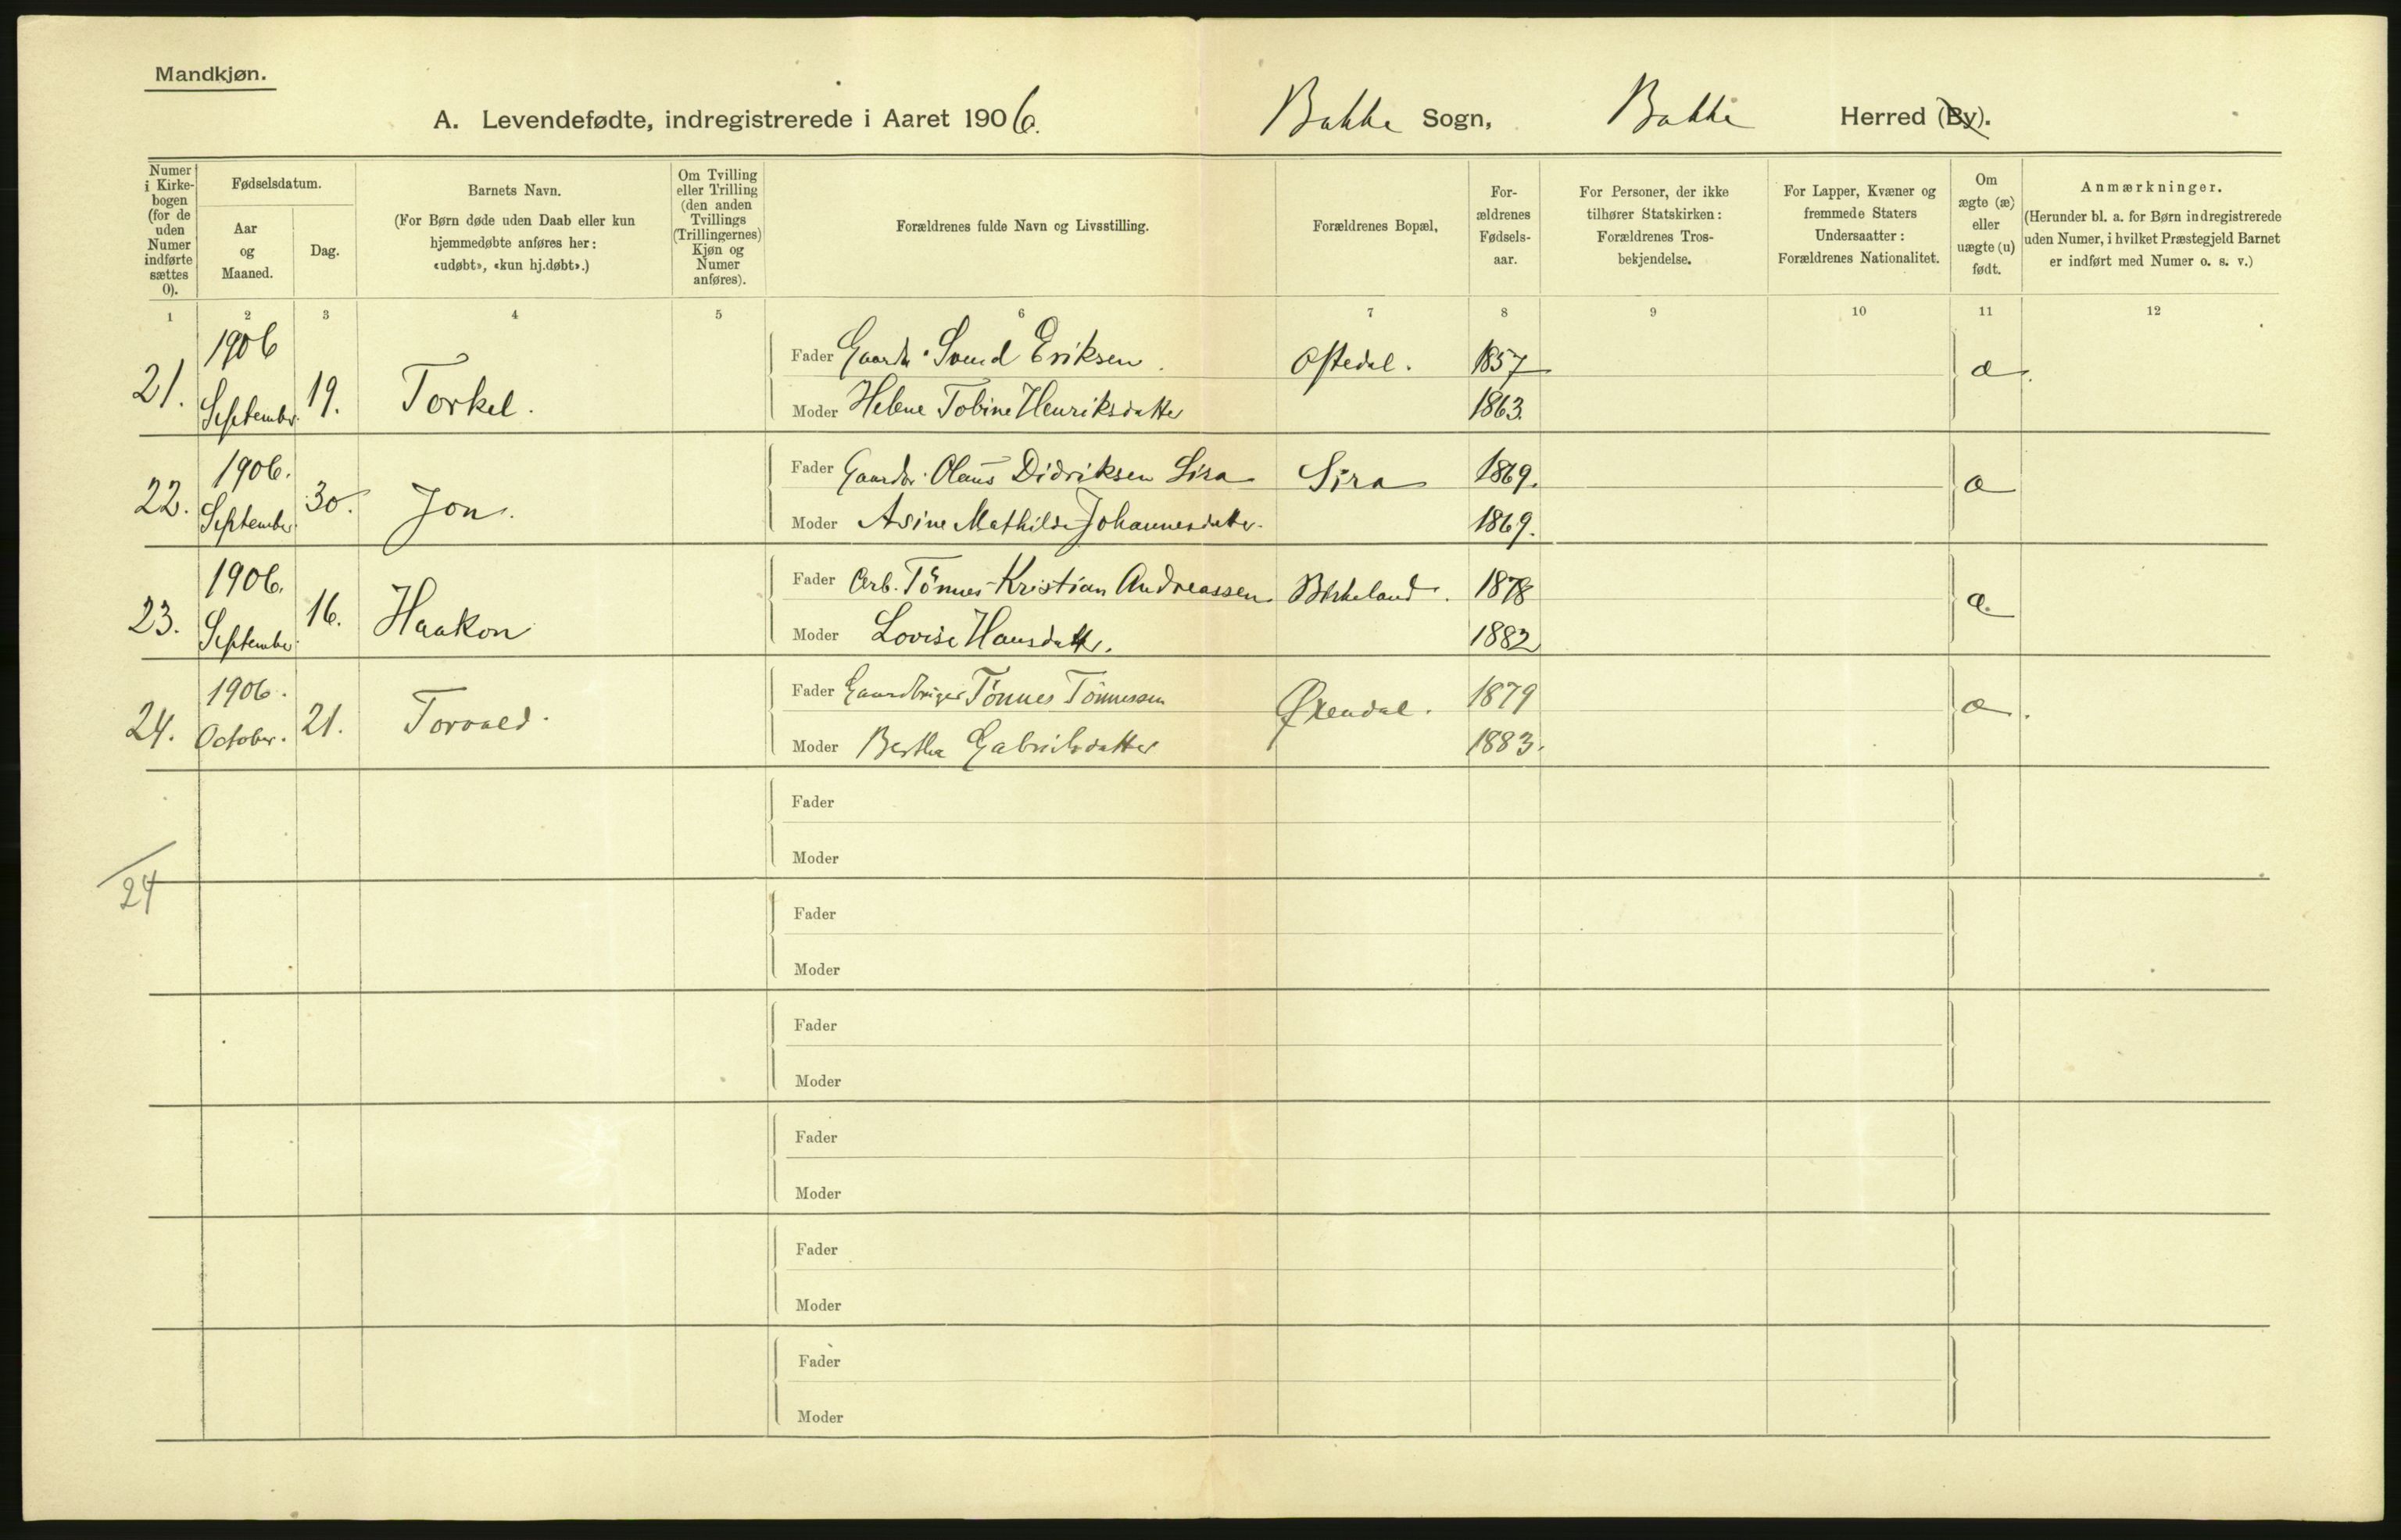 Mandkjøn.
A. Levendefødte, indregistrerede i Aaret 1906. Bakke Sogn, Bakke Herred (By).
Numer i Kirke-bogen (for de uden Numer indførte sættes 0).
Fødselsdatum.
Aar og Maaned.
Dag.
Barnets Navn.
(For Børn døde uden Daab eller kun
hjemmedøbte anføres her:
«udøbt», «kun hj.døbt».)
Om Tvilling
eller Trilling
(den anden
Tvillings
(Trillingernes)
Kjøn og
Numer
anføres).
Forældrenes fulde Navn og Livsstilling.
Forældrenes Bopæl,
For-
ældrenes
Fødsels-
aar.
For Personer, der ikke
tilhører Statskirken:
Forældrenes Tros-
bekjendelse.
For Lapper, Kvæner og
fremmede Staters
Undersaatter:
Forældrenes Nationalitet.
Om
ægte (æ)
eller
uægte (u)
født.
Anmærkninger.
(Herunder bl. a. for Børn indregistrerede
uden Numer, i hvilket Præstegjeld Barnet
er indført med Numer o. s. v.)
1 2 3 4 5 6 7 8 9 10 11 12
21. 1906 September. 19. Torkel. Fader Gaardb. Svend Eriksen. Østedal. 1857 æ.
Moder Helene Tobine Henriksdatter 1863.
22. 1906. September. 30. Jon. Fader Gaardbr. Olaus Didriksen Sira Sira 1869. æ
Moder Asine Mathilde Johannesdatter. 1869.
23. 1906. September. 16. Haakon Fader Arb. Tönnes Kristian Andreassen. Birkeland. 1878 æ.
Moder Lovise Hansdattr. 1882
24. 1906. October. 21. Torvald. Fader Gaardbruger Tönnes Tönnessen Øxendal. 1879 æ.
Moder Bertha Gabrielsdatter 1883.
Fader
Moder
24
Fader
Moder
Fader
Moder
Fader
Moder
Fader
Moder
Fader
Moder